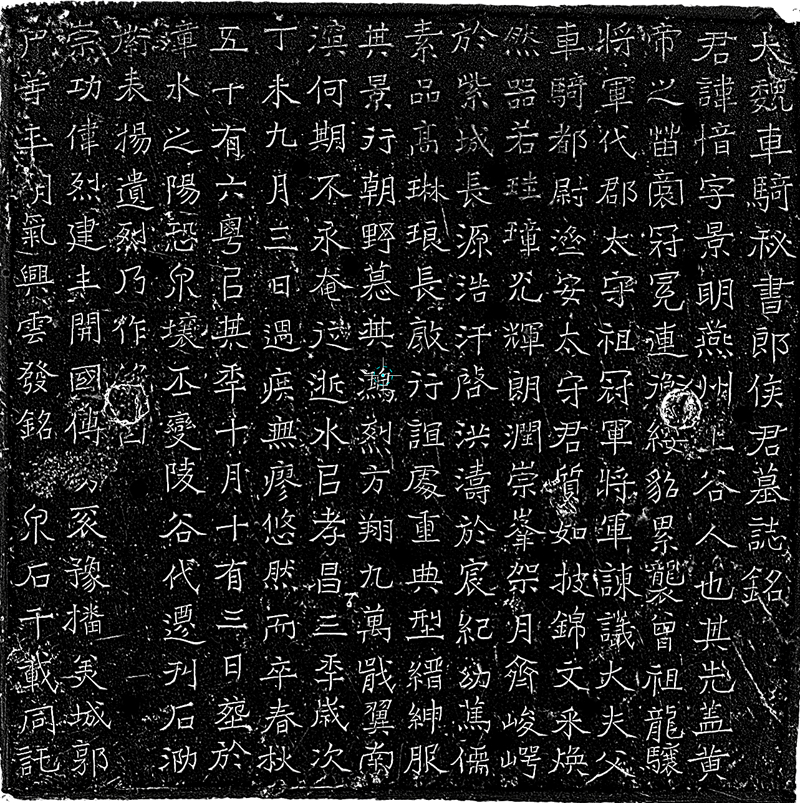 大魏車騎秘書郎侯君墓誌銘
君諱愔字景明燕州上谷人也其先蓋黃
帝之苗裔冠冕連綿綬貂累襲曾祖龍驤
將軍代郡太守祖冠軍將軍諫議大夫父
車騎都尉遼安太守君質如披錦文采煥
然器若珪璋光輝朗潤崇峯架月齊峻崿
於紫城長源浩汗啓洪濤於宸紀幼蔿儒
素品高琳琅長敵行誼處重典型縉紳服
其景行朝野慕其鴻烈方翔九萬戢翼南
濱何期不永奄從逝水㠯孝昌三季歲次
丁未九月三日遇疾無廖悠然而卒春秋
五十有六粵㠯其季十月十有三日塟於
漳水之陽恐泉壤丕變陵谷代遷刊石泐
表揚遺烈乃作
崇功偉烈建丰開國傳豕豫播美城郭
善年明氣興雲發銘泉石千載同託